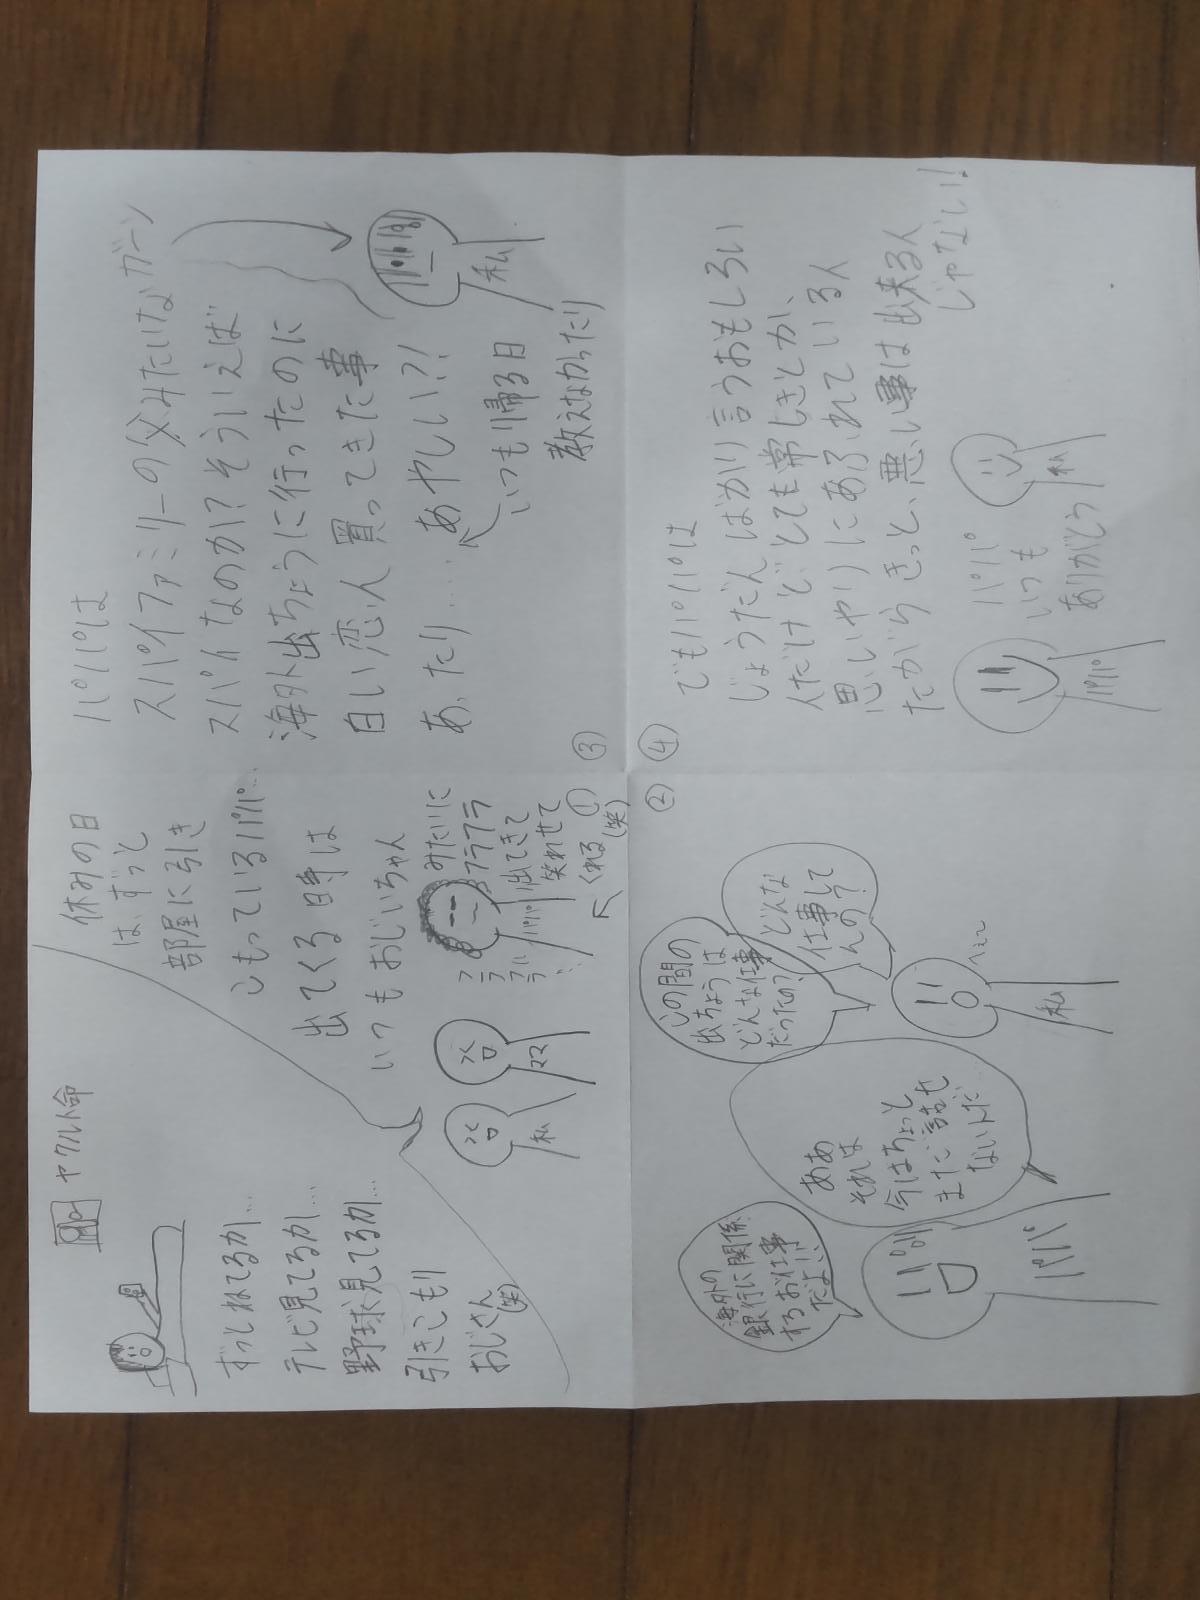 ヤクルト命
ずっとねてるか…
テレビ見てるか…
野球見てるか…
引きこもり
おじさん
(笑)
休みの日
は、ずっと
部屋に引き
こもっているパパ…
出てくる時は
いつもおじいちゃん
みたいに
フラフラ
出てきて
笑わせて
くれる
(笑)
①
私
ママ
パパ
②
海外の
銀行に関係
するお仕事
だよ!!
ああ
それは
今はちょっと
まだ話せ
ないんだ…
この間の
出ちょうは
どんな仕事
だったの?
どんな
仕事して
んの?
パパ
私
へぇ〜
③
パパは
スパイファミリーの父みたいな
スパイなのか?そういえば
海外出ちょうに行ったのに
白い恋人買ってきた事
あったり……あやしい?!
いつも帰る日
教えなかったり
ガーン
私
④
でもパパは
じょうだんばかり言うおもしろい
人だけど、とても常しきとか、
思いやりにあふれている人
だからきっと、悪い事は出来る人
じゃない!
パパ
いつも
ありがとう
パパ
私